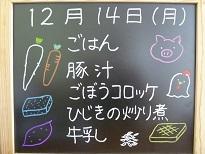 12月14日(月)
ごはん
豚汁
ごぼうコロッケ
ひじきの炒り煮
牛乳